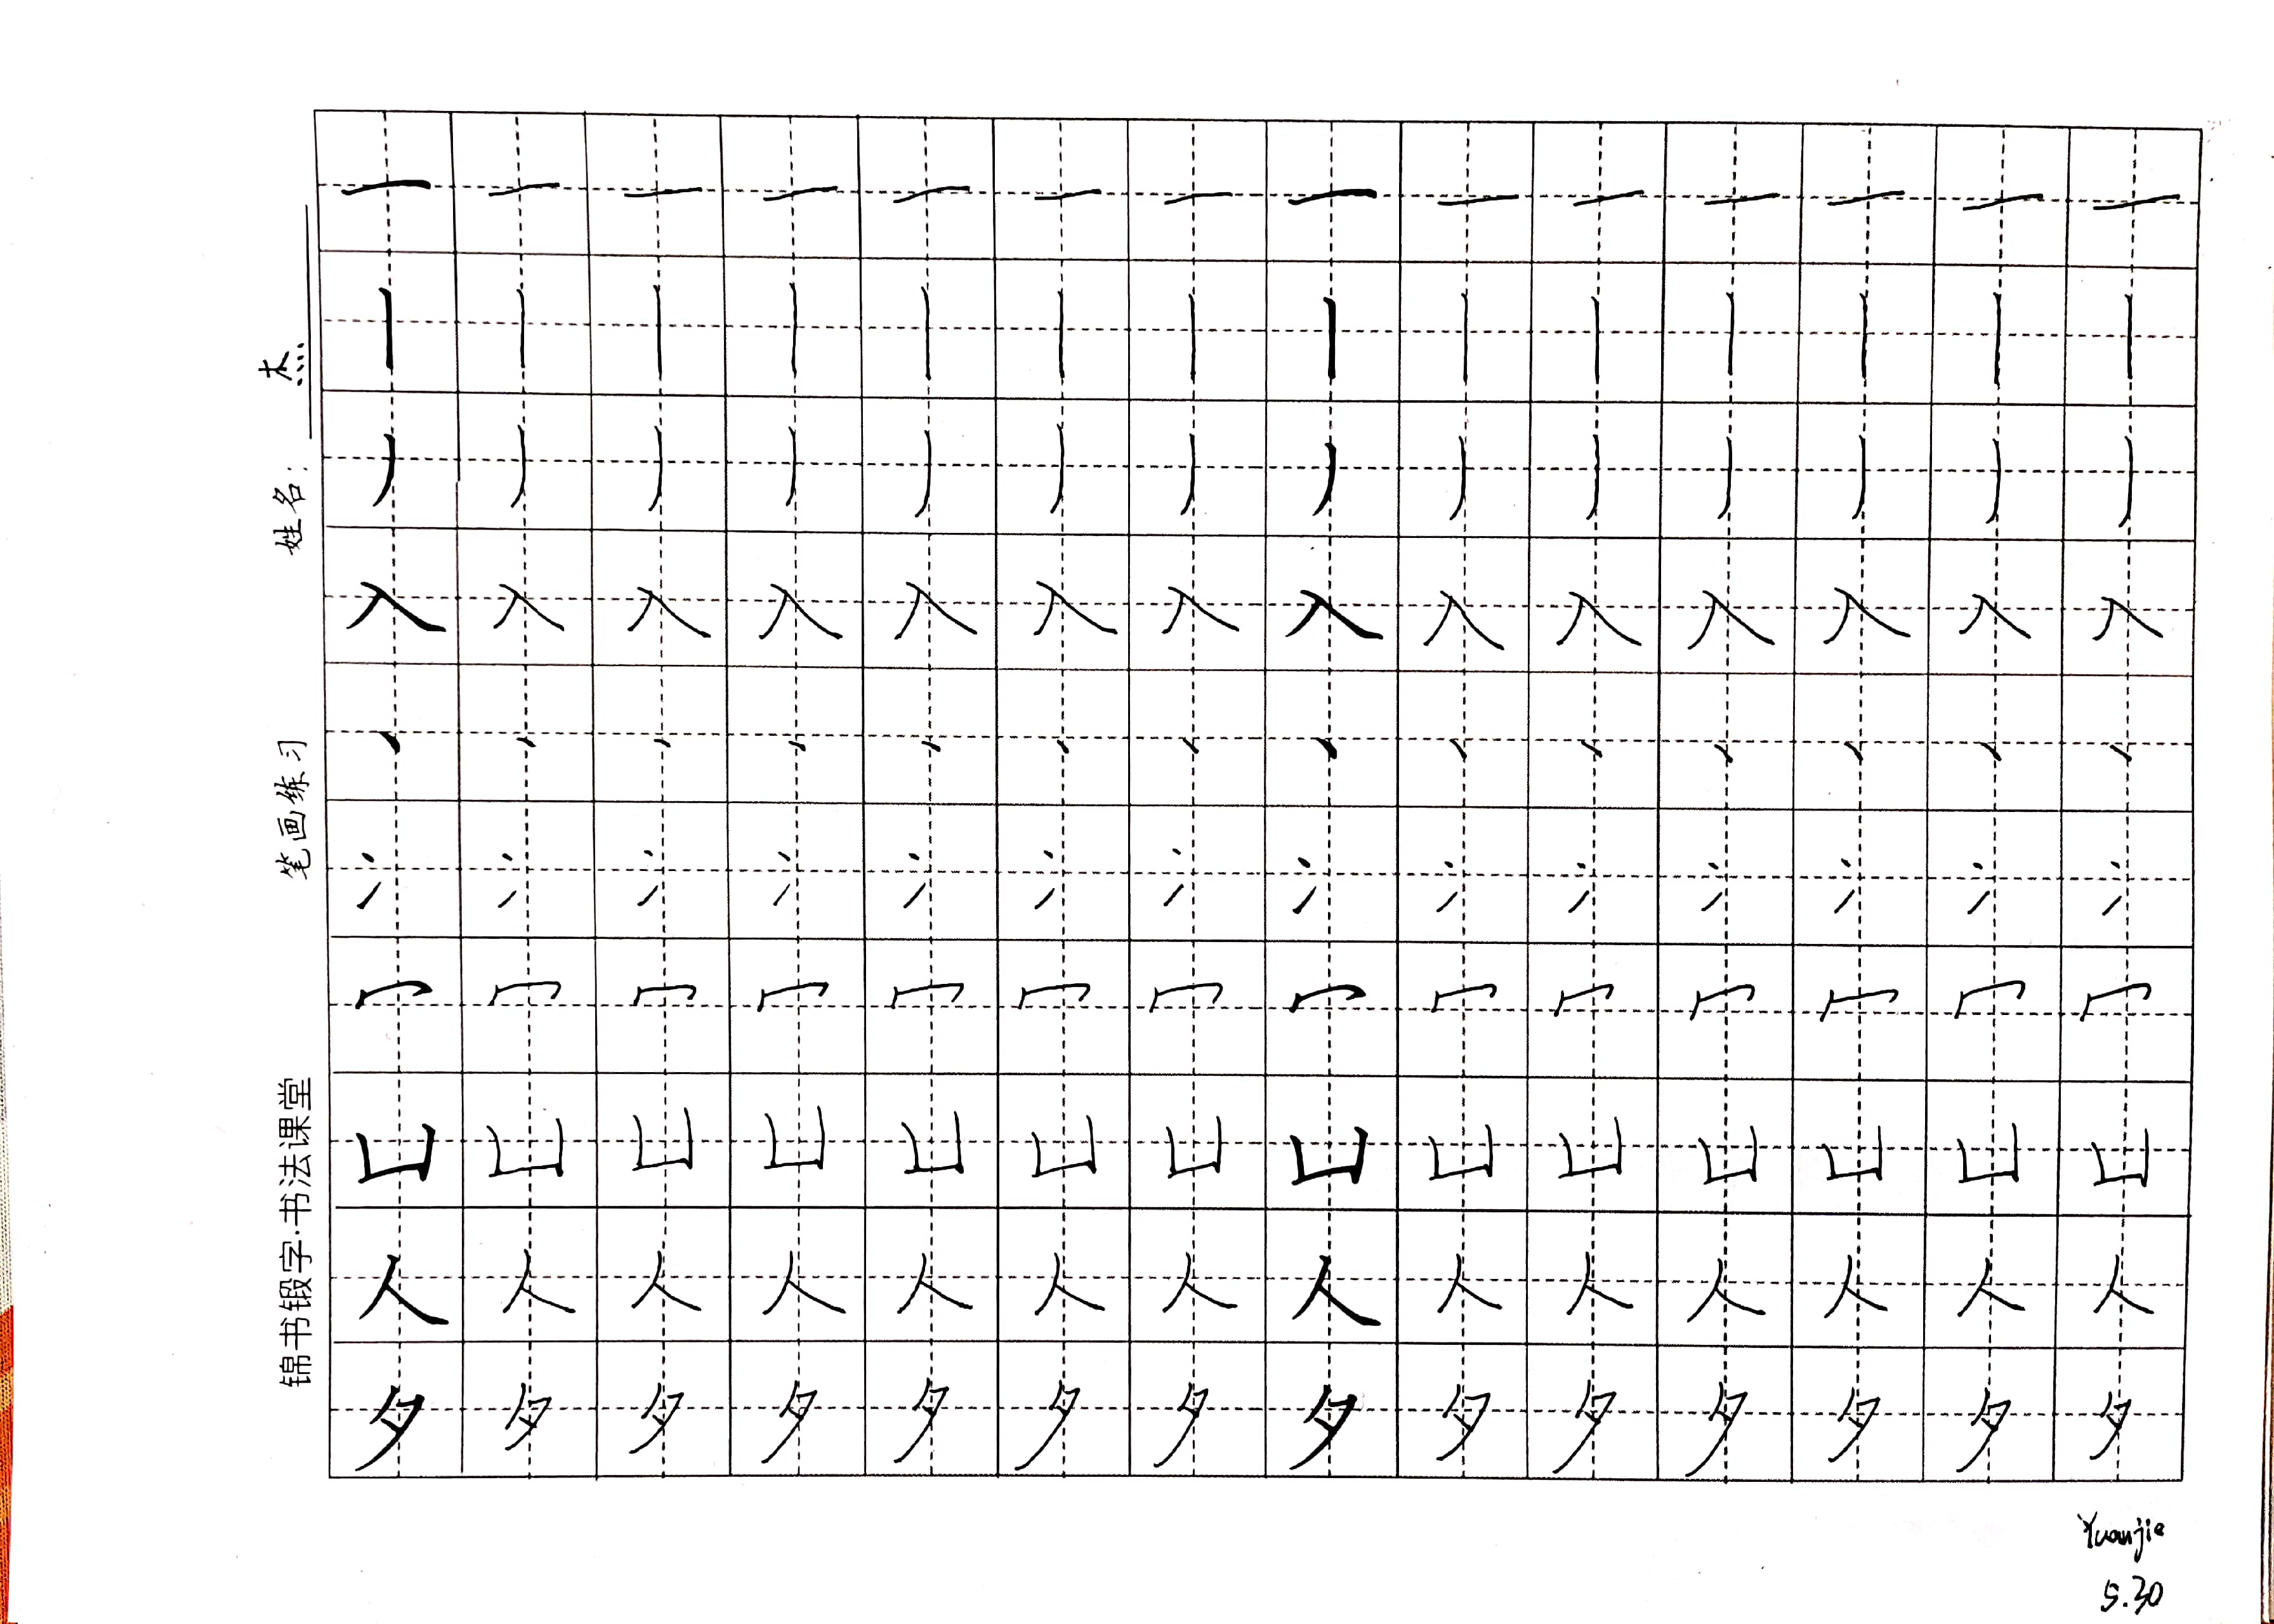 锦书锻字·书法课堂 笔画练习 姓名：杰
一 一 一 一 一 一 一 一 一 一 一 一 一 一
丨 丨 丨 丨 丨 丨 丨 丨 丨 丨 丨 丨 丨 丨
丿 丿 丿 丿 丿 丿 丿 丿 丿 丿 丿 丿 丿 丿
入 入 入 入 入 入 入 入 入 入 入 入 入 入
丶 丶 丶 丶 丶 丶 丶 丶 丶 丶 丶 丶 丶 丶
冫 冫 冫 冫 冫 冫 冫 冫 冫 冫 冫 冫 冫 冫
冖 冖 冖 冖 冖 冖 冖 冖 冖 冖 冖 冖 冖 冖
凵 凵 凵 凵 凵 凵 凵 凵 凵 凵 凵 凵 凵 凵
人 人 人 人 人 人 人 人 人 人 人 人 人 人
夕 夕 夕 夕 夕 夕 夕 夕 夕 夕 夕 夕 夕 夕
Yuanjie
5.30